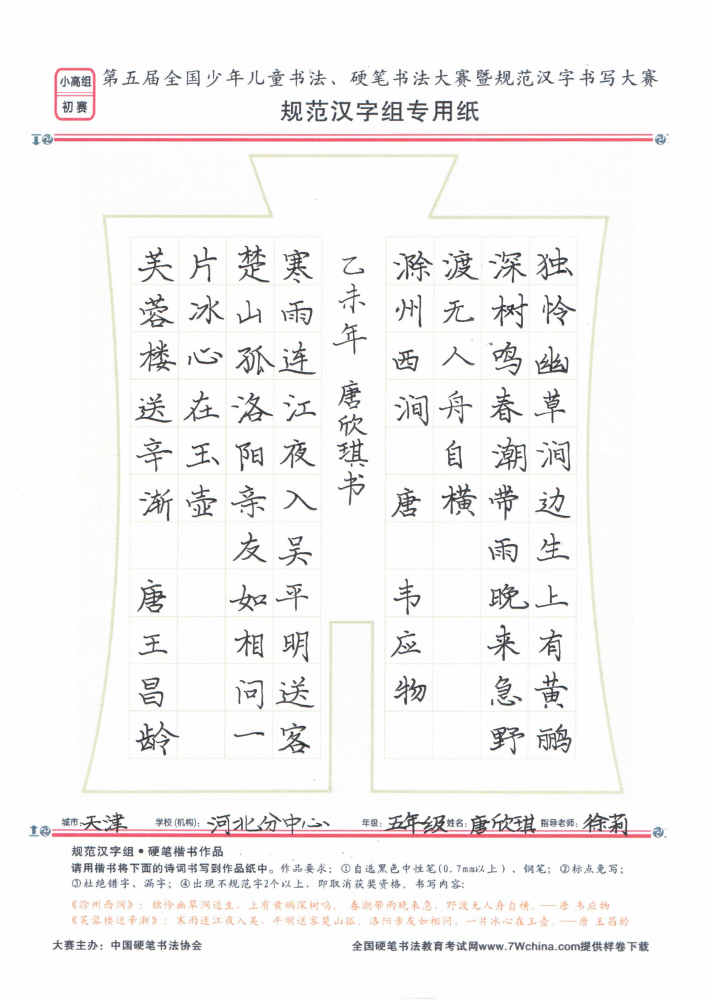 小高组
初赛
第五届全国少年儿童书法、硬笔书法大赛暨规范汉字书写大赛
规范汉字组专用纸
独怜幽草涧边生上有黄鹂
深树鸣春潮带雨晚来急野
渡无人舟自横
滁州西涧 唐 韦应物
乙未年 唐欣琪书
寒雨连江夜入吴平明送客
楚山孤洛阳亲友如相问一
片冰心在玉壶
芙蓉楼送辛渐 唐王昌龄
城市: 天津 学校(机构): 河北分中心 年级: 五年级 姓名: 唐欣琪 指导老师: 徐莉
规范汉字组•硬笔楷书作品
请用楷书将下面的诗词书写到作品纸中。作品要求:①自选黑色中性笔(0.7mm以上)、钢笔;②标点免写;
③杜绝错字、漏字;④出现不规范字2个以上,即取消获奖资格。书写内容:
《滁州西涧》:独怜幽草涧边生,上有黄鹂深树鸣。春潮带雨晚来急,野渡无人舟自横。——唐 韦应物
《芙蓉楼送辛渐》:寒雨连江夜入吴,平明送客楚山孤。洛阳亲友如相问,一片冰心在玉壶。——唐 王昌龄
大赛主办:中国硬笔书法协会 全国硬笔书法教育考试网www.7Wchina.com提供样卷下载